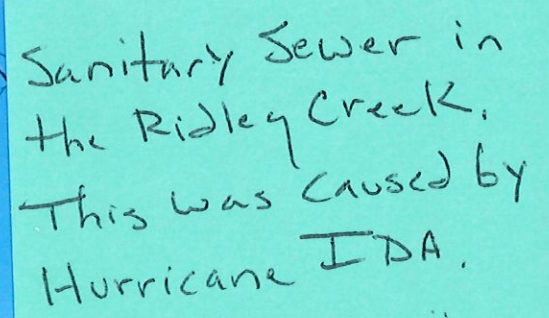 Sanitary Sewer in
the Ridley Creek.
This was caused by
Hurricane IDA.